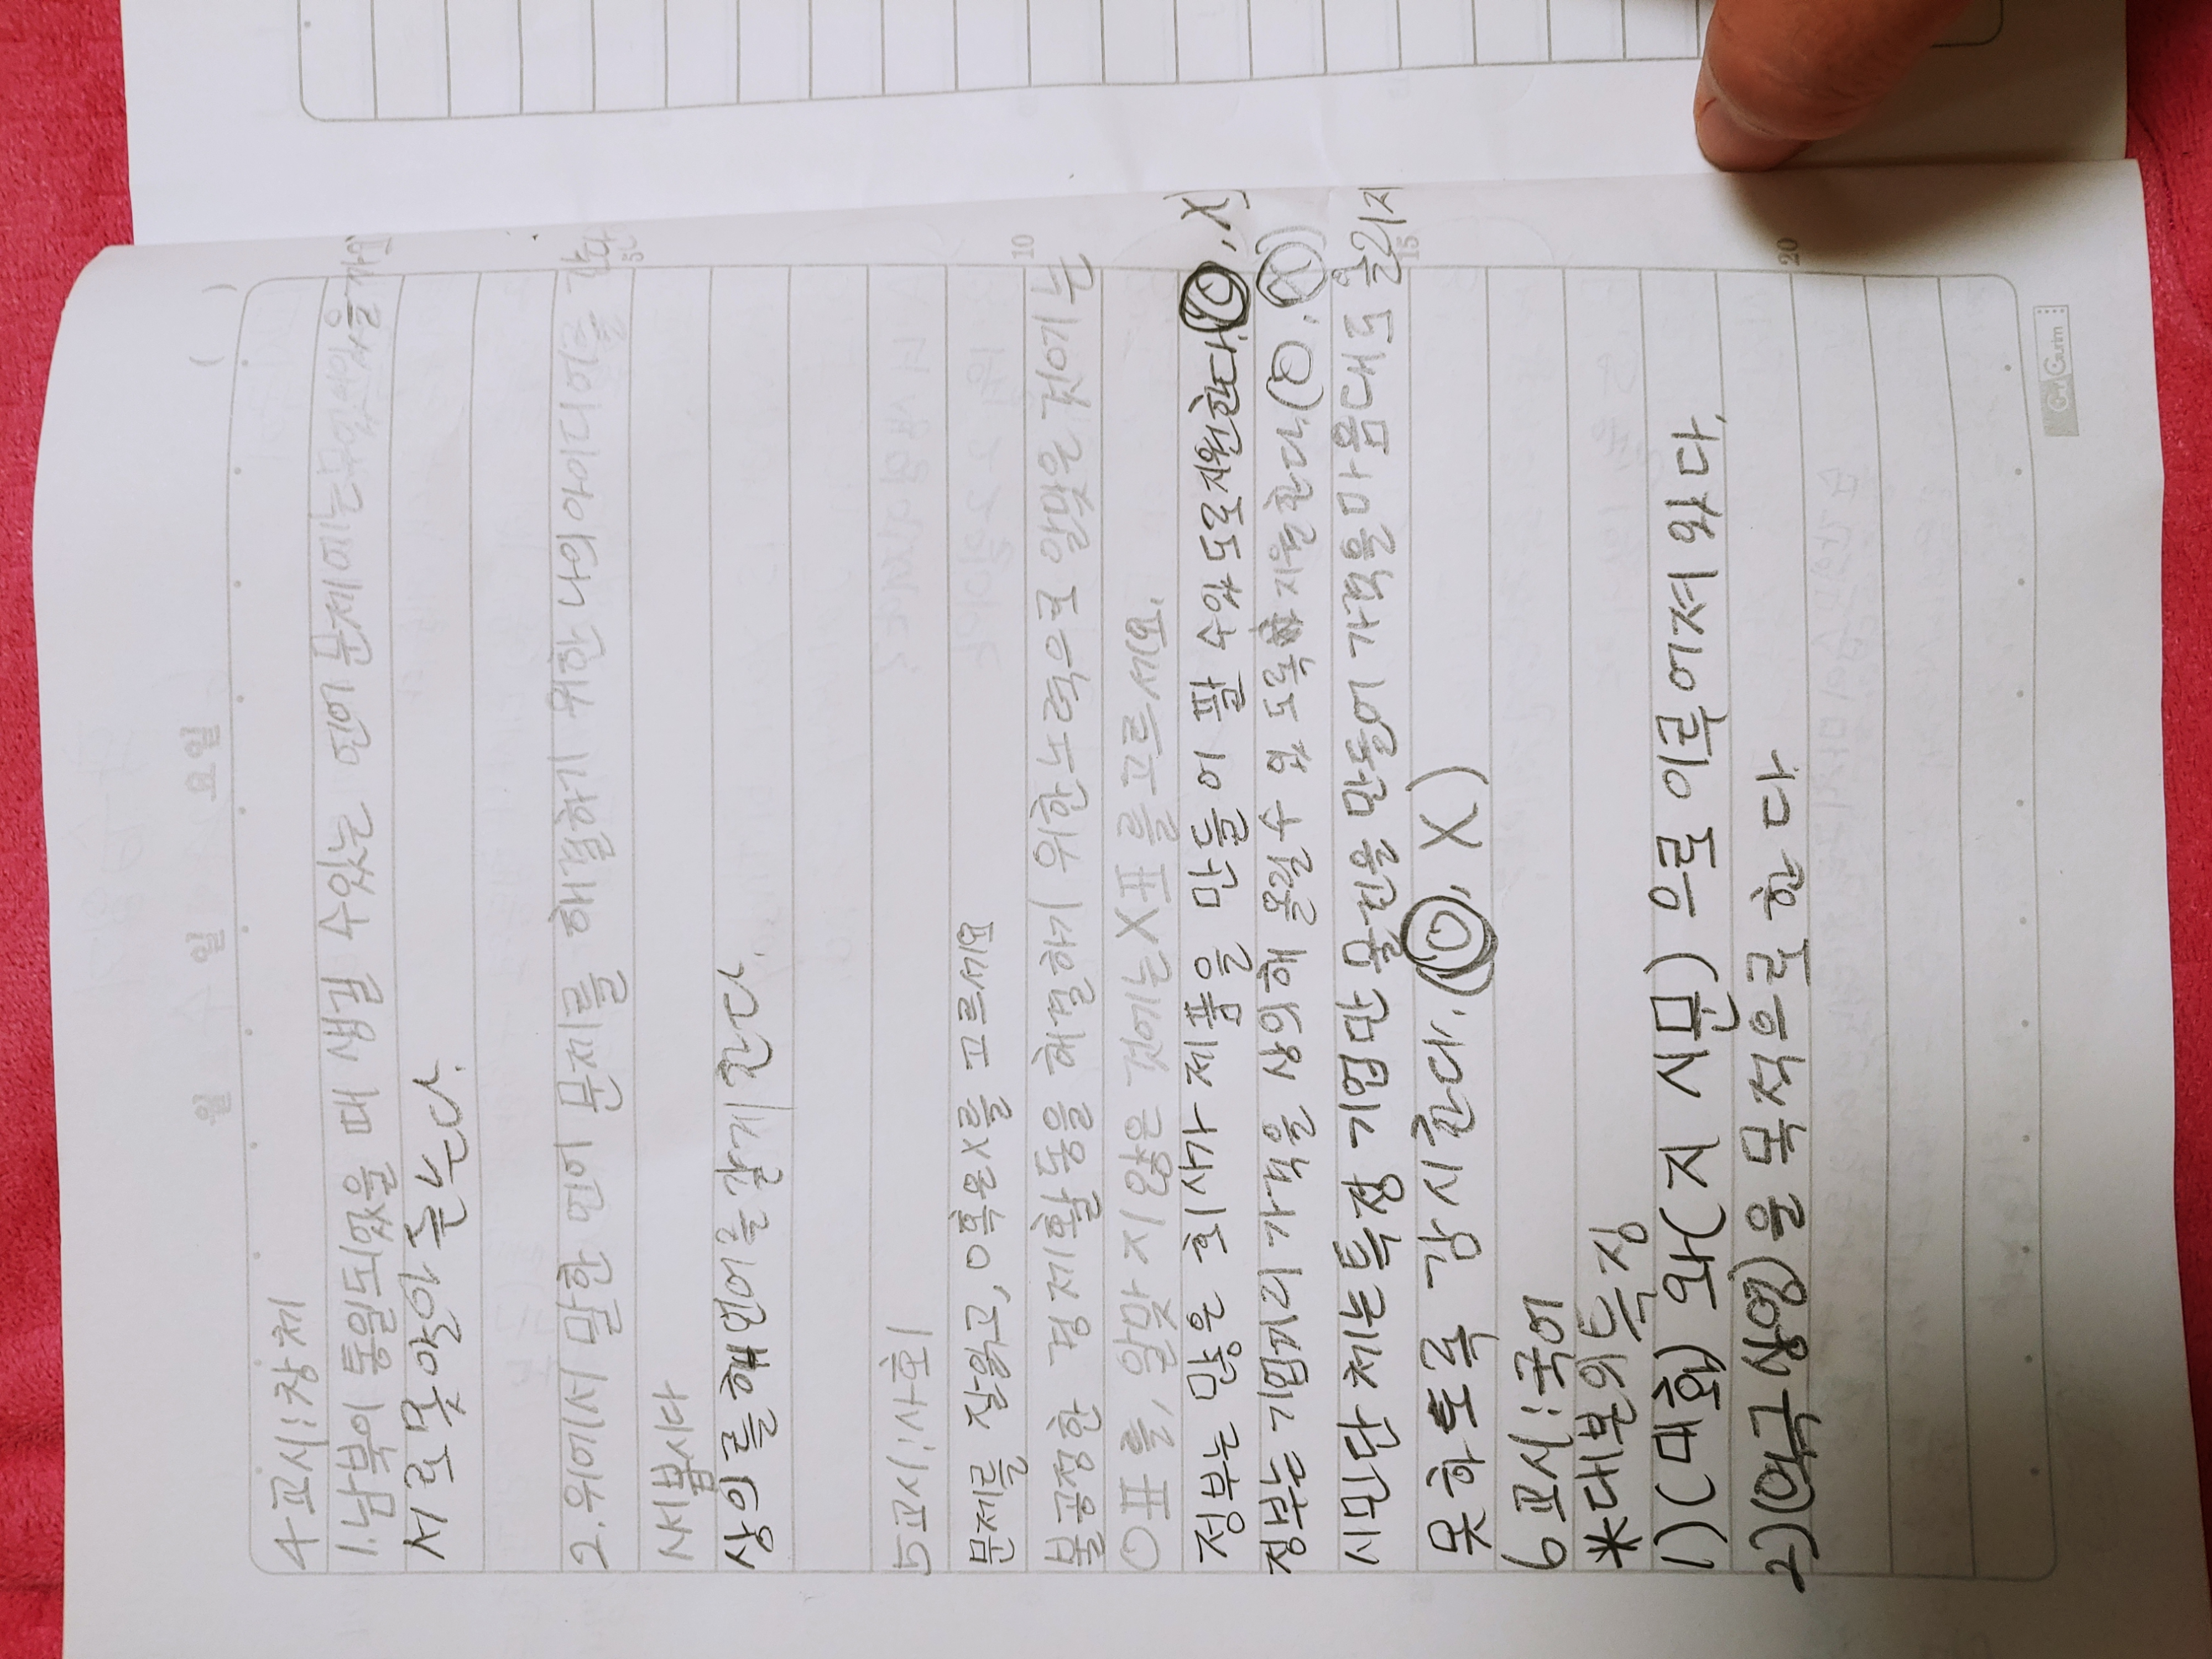 월 일 요일 ( )
4교시:창체
1.남북이 통일되었을 때 생길 수있는 언어 문제에는 무엇이 있을까요
서로 못알아 듣는다.
2.위에서 말한 언어 문제를 해결하기 위한 나의 아이디어를
써봅시다
상이를해 언어를 알게 한다.
5교시:사회
문제를 잘읽고, O혹은X를 고르세요
불공정한 경제활동을 해결하기 위한 노력으로 알맞은 것에는
O표를, 알맞지 않은 것에는 X표를 고르세요.
정부는 많은 회사가 제품을 만들어 팔 수있도록지원한다.(O, X)
정부는 기업끼리 가격을 상의해 올릴 수 있도록 지원한다.(O, X)
시민단체는특정 기업만 물건을 만들어 가격을마음대로 올리지
못하도록 감시한다.(O, X)
6교시:국어
*대본의특징
1)(대화) 와(지시문) 으로 이루어져 있다.
2)(연극상영)을 목적으로 한다
5
10
15
20